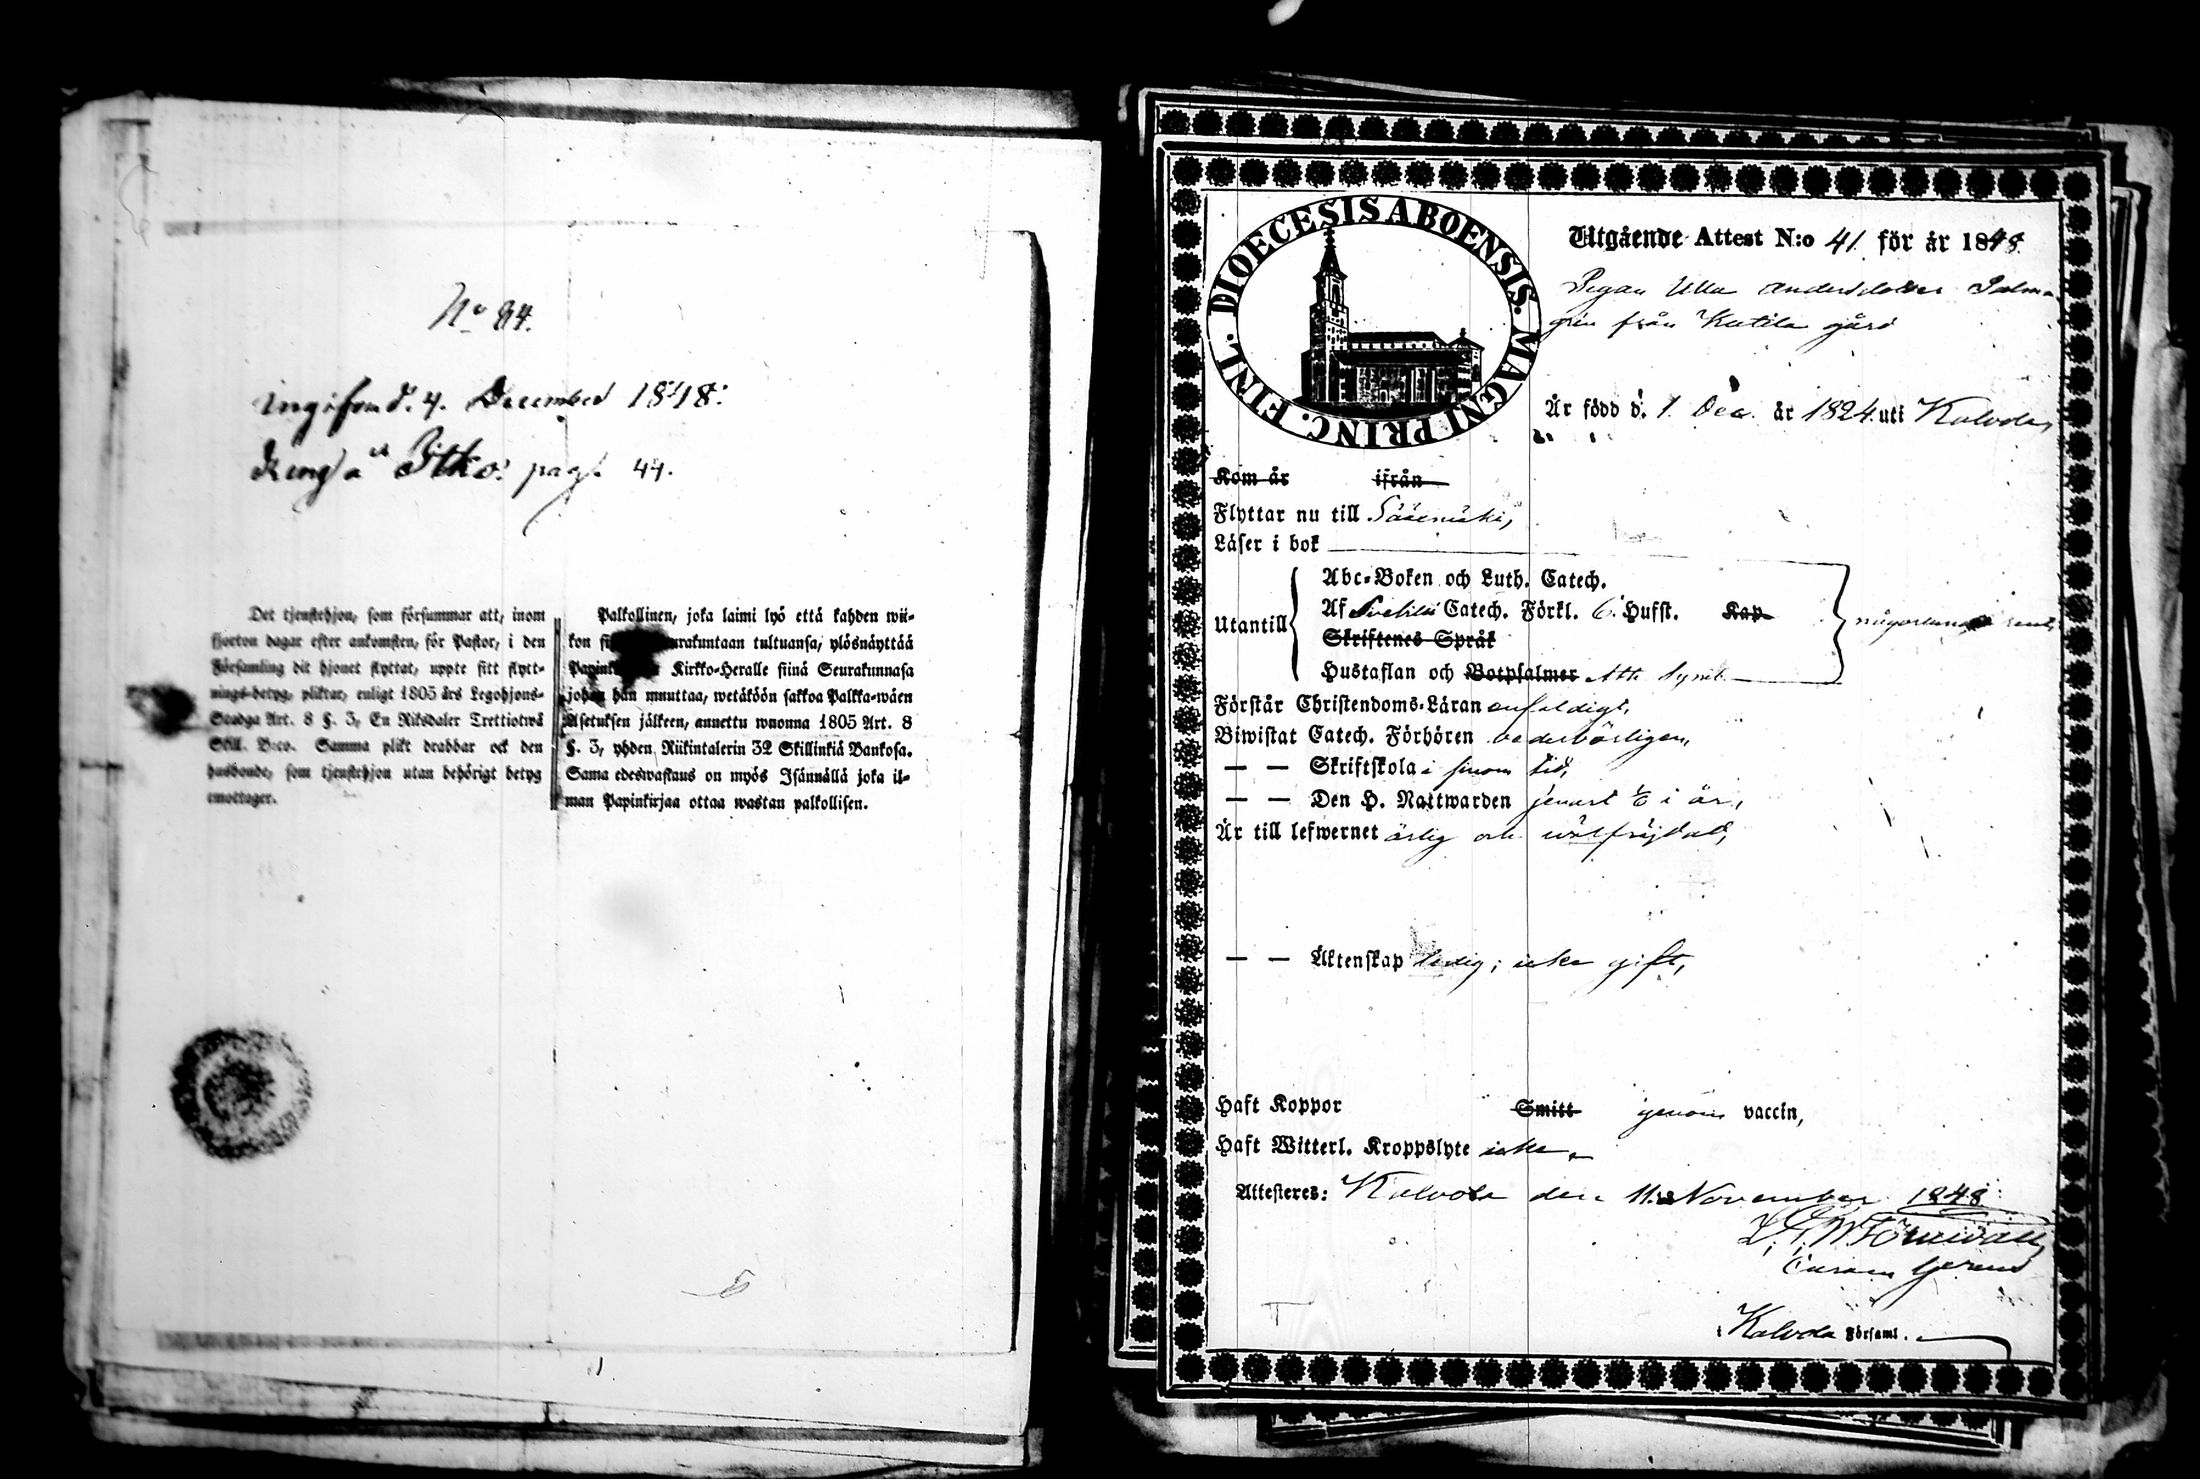 No 84.
Ingifven d. 4. December 1848:
Rengo å Pitko: pag. 44.
Det tjenstehjon, som försummar att, inom
fjorton dagar efter ankomsten, för Pastor, i den
Församling dit hjonet flyttat, uppte sitt flytt-
nings-betyg, pliktar, enligt 1805 års Legohjons-
Stadga Art. 8 §. 3, En Riksdaler Trettiotwå
Skill. B:co. Samma plikt drabbar ock den
husbonde, som tjenstehjon utan behörigt betyg
emottager.
Palkollinen, joka laimi lyö että kahden wii-
kon tultuansa, ylösnäyttää
Kirkko-Heralle siinä Seurakunnasa
johon hän muuttaa, wetäköön sakkoa Palkka-wäen
Asetuksen jälkeen, annettu wuonna 1805 Art. 8
§. 3, yhden Riikintalerin 32 Skillinkiä Bankosa.
Sama edeswastaus on myös Isännällä joka il-
man Papinkirjaa ottaa wastan palkollisen.
DIOECESIS ABOENSIS. MAGNI PRINC. FINL.
Utgående Attest N:o 41. för år 1848.
Pigan Ulla Andersdotter Palm-
grén från Kutila gård
Är född d. 1. Dec. år 1824. uti Kalvola,
Kom år ifrån
Flyttar nu till Sääxmäki,
Läser i bok
Utantill
Abc-Boken och Luth. Catech.
Af Svebilii Catech. Förkl. 6. Hufst. Kap
Skriftenes Språk
Hustaflan och Botpsalmer Ath. Symb.
någorlunda rent,
Förstår Christendoms-Läran enfaldigt,
Biwistat Catech. Förhören vederbörligen,
— — Skriftskola i sinom tid,
— — Den H. Nattwarden i år,
Är till lefwernet ärlig och wälfrejdad,
— — Äktenskap ledig; icke gift,
Haft Koppor Smitt genom vaccin,
Haft Witterl. Kroppslyte icke.
Attesteres: Kalvola den 11. November 1848.
Curam Gerens
i Kalvola Församl.